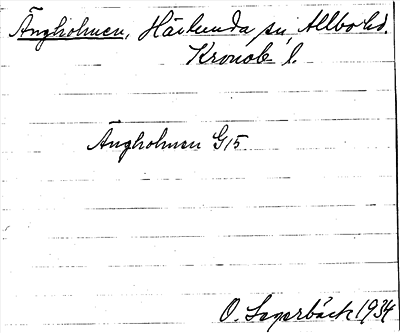 Ängholmen, Härlunda sn, Allbo hd.
Kronob. l.
Ängholmen G15
O. Lagerbäck 1934